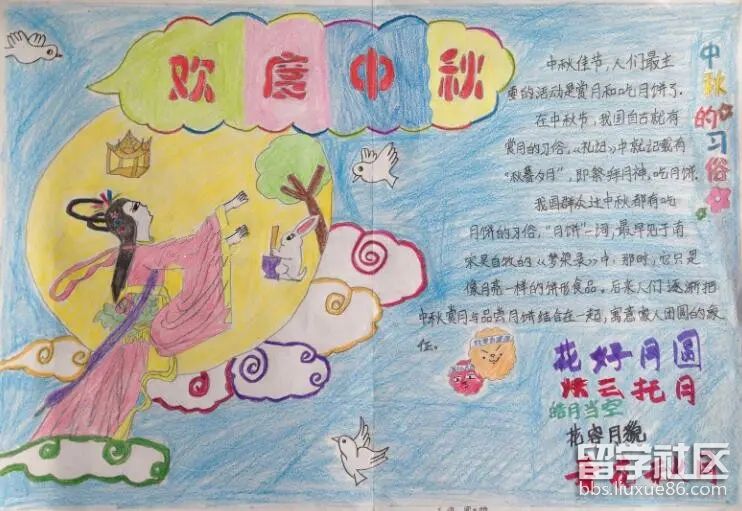 欢度中秋
中秋的习俗
中秋佳节,人们最主
要的活动是赏月和吃月饼了.
在中秋节,我国自古就有
赏月的习俗,《礼记》中就记载有
“秋暮夕月”,即祭拜月神,吃月饼.
我国群众过中秋都有吃
月饼的习俗,“月饼”一词,最早见于南
宋吴自牧的《梦梁录》中,那时,它只是
像月亮一样的饼形食品。后来人们逐渐把
中秋赏月与品尝月饼结合在一起,寓意家人团圆的象
征。
花好月圆
烘云托月
皓月当空
花容月貌
留学社区
bbs.liuxue86.com